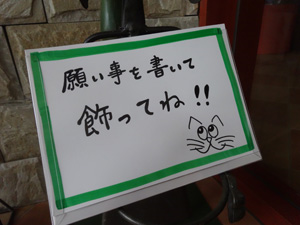 願い事を書いて
飾ってね!!